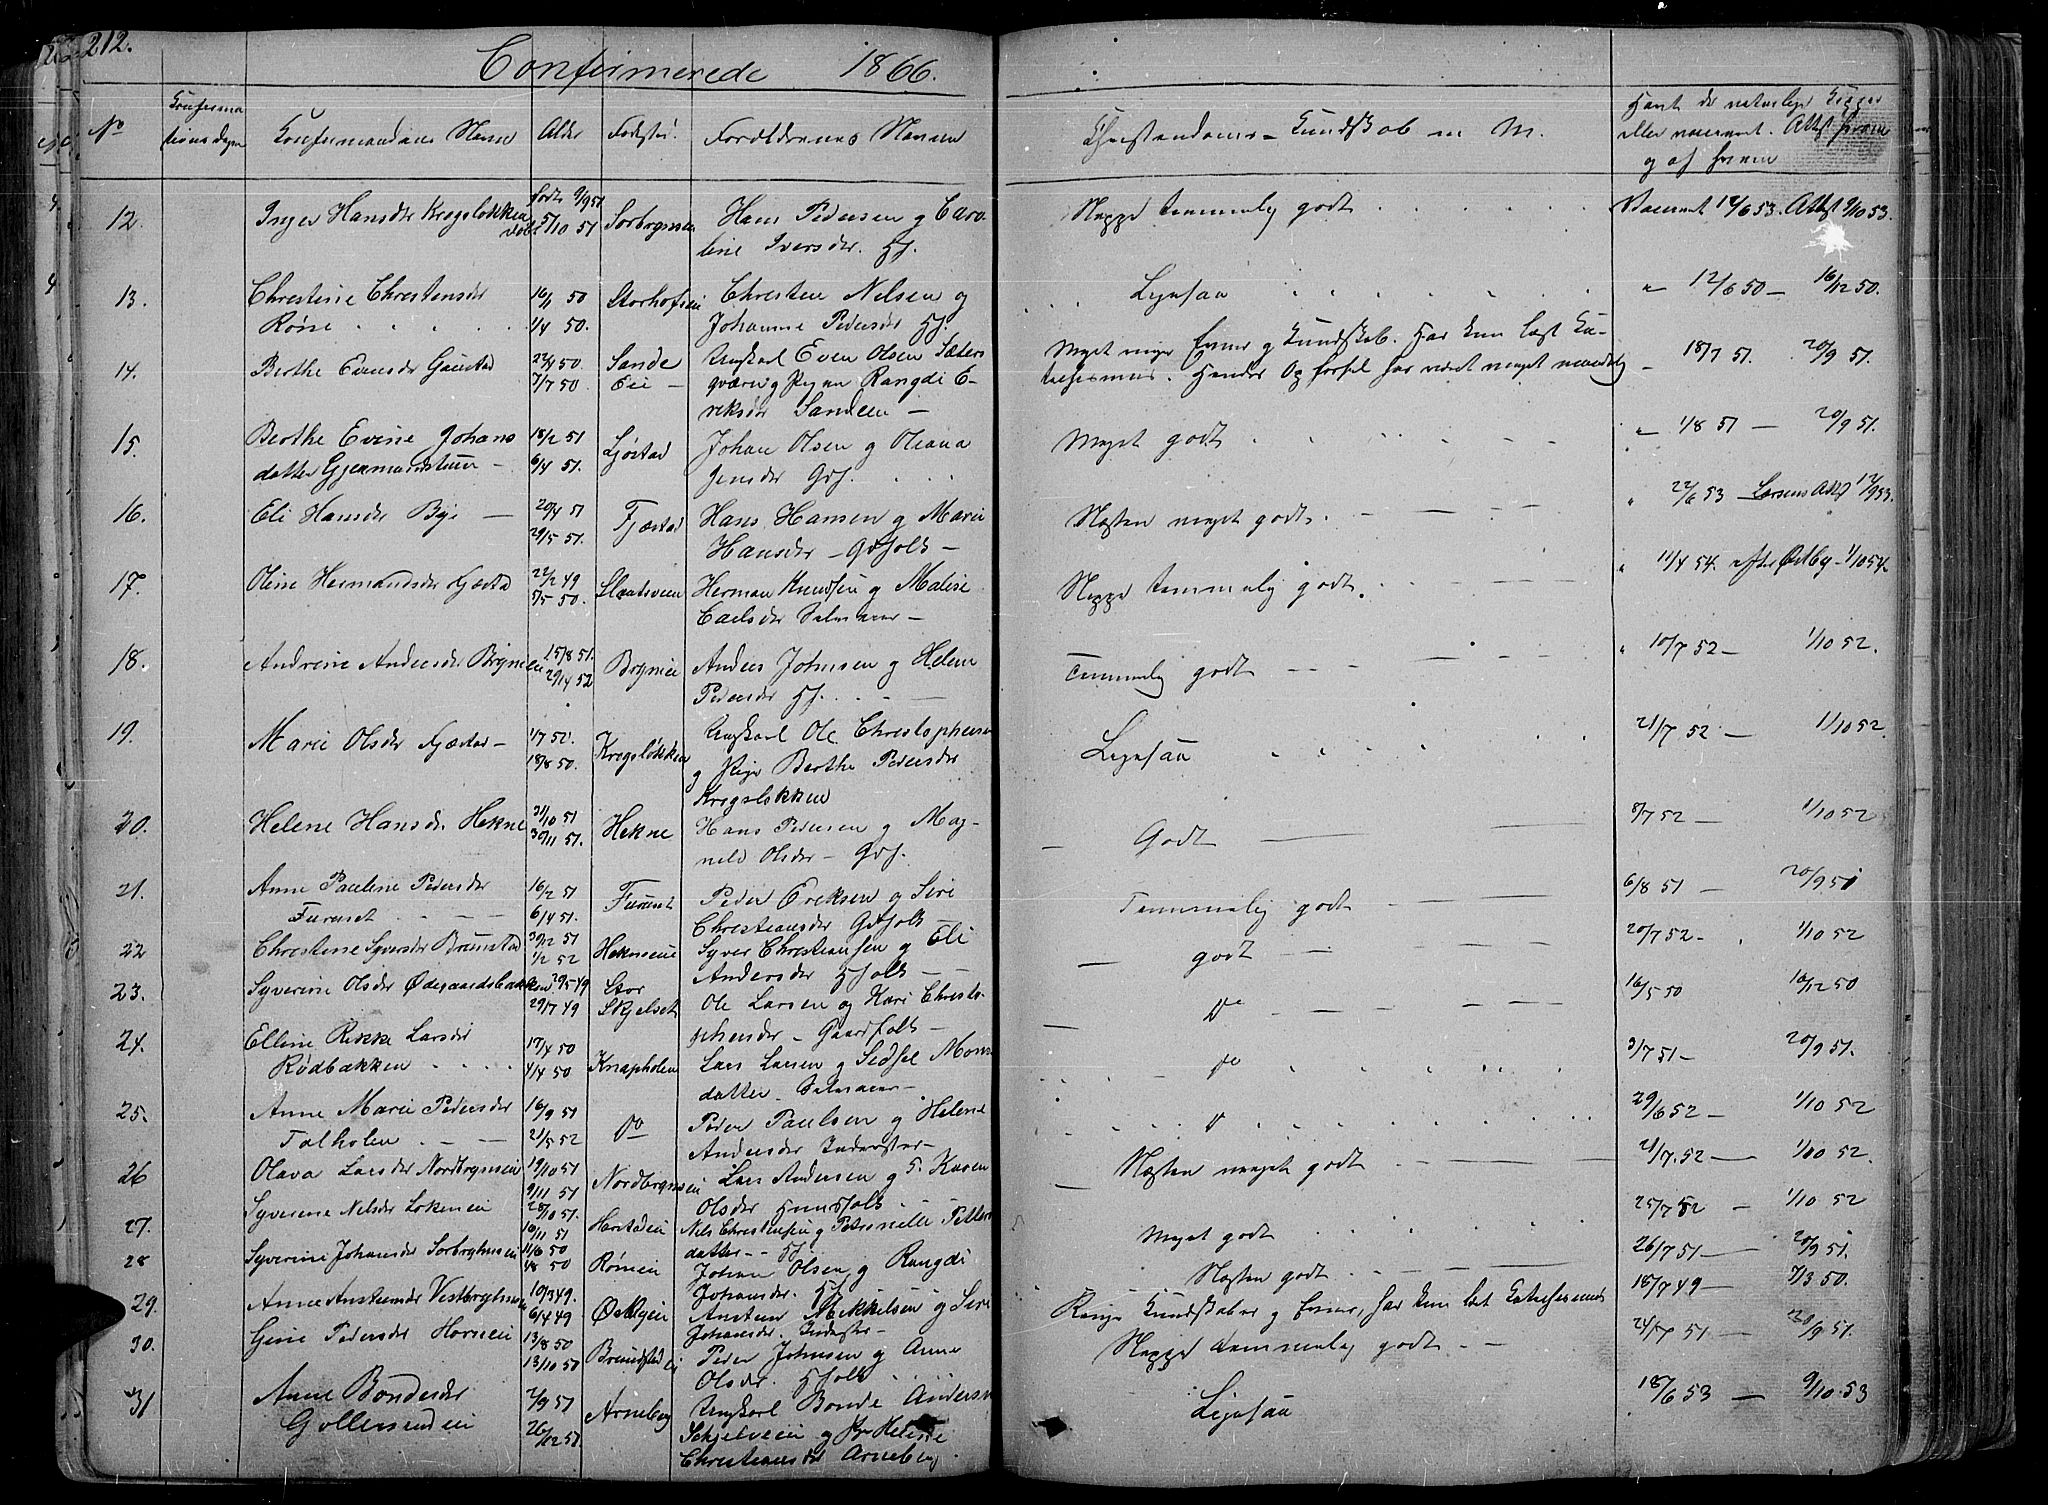 212.
Confirmerede 1866.
No
Confirma
tions Dagen
Confirmandens Navn
Alder
Fødested.
Forældrenes Navne
Christendoms-Kundskab m M.
Havt de naturlige Kopper
eller vaccineret. Attst
og af hvem
12.
Inger Hansdr Krogsløkken
født 9/9 51
døbt 5/10 51
Sorbrynseie
Hans Pedersen og Caro
line Iversdr. HJ.
Neppe temmelig godt
Vaccinert 12/6 53. Attst 9/10 53.
13.
Christine Christensdr
Røise
16/1 50
1/4 50.
Storhofseie
Christen Nilsen og
Johanne Pedersdr HJ.
Ligesaa
" 12/6 50 — 16/12 50.
14.
Berthe Evensdr Gaustad
22/4 50
7/7 50.
Sande
Eie —
Ungkarl Even Olsen Sæters
qværn og Pigen Rangdi E-
riksdr Sandeen —
Meget ringe Evner og Kundskab. Har kun læst Ca-
techismus. Hendes Opførsel har været meget
18/7 51. 20/9 51.
15.
Berthe Evine Johans
datter Gjermundstuen —
18/2 51
6/4 51.
Ljøstad
Johan Olsen og Oleana
Jensdr Gdf.
Meget godt
" 1/8 51 — 20/9 51.
16.
Eli Hansdr Bye —
20/4 51
29/5 51.
Fjæstad
Hans Hansen og Marie
Hansdr — Gdfolk —
Næsten meget godt.
" 22/6 53 Larsens Attst 12/9 53.
17.
Oline Hermansdr Fjæstad
22/2 49
5/5 50.
Slaatsveen
Herman Knudsen og Malise
Carlsdr Selveier —
Neppe temmelig godt.
" 11/4 54. efter Østby — 1/10 54.
18.
Andrine Andersdr Bryneie
15/8 51.
29/4 52
Brynieie
Anders Johnsen og Helene
Pedersdr HJ.
Temmelig godt
" 10/7 52 — 1/10 52.
19.
Marie Olsdr Fjæstad —
1/7 50.
18/8 50.
Krogsløkken
Ungkarl Ole Christophersen
og Pige Berthe Pedersdr
Krogsløkken
Ligesaa
21/7 52 — 1/10 52.
20.
Helene Hansdr. Hekne
31/10 51
30/11 51.
Hekne
Hans Pedersen og Mag-
nild Olsdr — Gdf.
Godt
8/7 52 — 1/10 52
21.
Anne Pauline Pedersdr
Furuset
16/2 51
6/4 51.
Furuset
Peder Eriksen og Siri
Christiansdr Gdfolk
Temmelig godt
6/8 51 — 20/9 51
22
Christine Syversdr Brunstad
30/12 51
1/2 52
Hekneeie
Syver Christiansen og Eli
Andersdr Hfolk —
godt
20/7 52 — 1/10 52
23.
Syverine Olsdr Ødegaardsbakken
29/5 49
29/7 49
Stor
Skjelset
Ole Larsen og Kari Christo-
phersdr — Gaardfolk —
Do
16/5 50 10/12 50
24.
Elline Rikke Larsdr
Rødbakken
17/4 50
4/4 50
Knapholen
Lars Larsen og Sidsel Mons
datter Selveier —
Do
3/7 51 — 20/9 51.
25.
Anne Marie Pedersdr
Talholen
16/9 51
21/5 52
Do
Peder Paulsen og Helene
Andersdr Inderster —
Do
29/6 52 — 1/10 52
26
Olava Larsdr Nordbrynseie
19/10 51
9/11 51
Nordbrynseie
Lars Andersen og Karen
Olsdr Husfolk
Næsten meget godt
21/7 52 — 1/10 52.
27.
Syverine Nilsdr Løkeneie
28/10 51.
16/11 51
Harstadeie
Nils Christensen og Petronelle Petters
datter — HJ
Meget godt
25/7 52 — 1/10 52
28
Syverine Johansdr Sorbrynseie
11/6 50
4/8 50
Rømeie
Johan Olsen og Rangdi
Johansdr. HJ
Næsten godt
26/7 51 — 20/9 51.
29.
Anne Anstensdr Vestbrynseie
10/3 49.
6/4 49
Østbyeie
Ansten Mikkelsen og Siri
Johansdr. Inderster —
Ringe Kundskaber og Evner, har kun læst Catechismus
18/7 49 — 7/3 50.
30.
Gine Pedersdr Horneie
13/8 50
13/10 50
Brundstadeie
Peder Johnsen og Anne
Olsdr. Hfolk
Neppe temmelig godt —
24/7 51 — 20/9 51.
31
Anne Bondesdr
Gollersrudeie
2/9 51
26/12 51
Arneberg
Ungkarl Bonde Andersn
Skjelveien og Pn Helene
Christiansdr Arneberg
Ligesaa
18/6 53 — 9/10 53